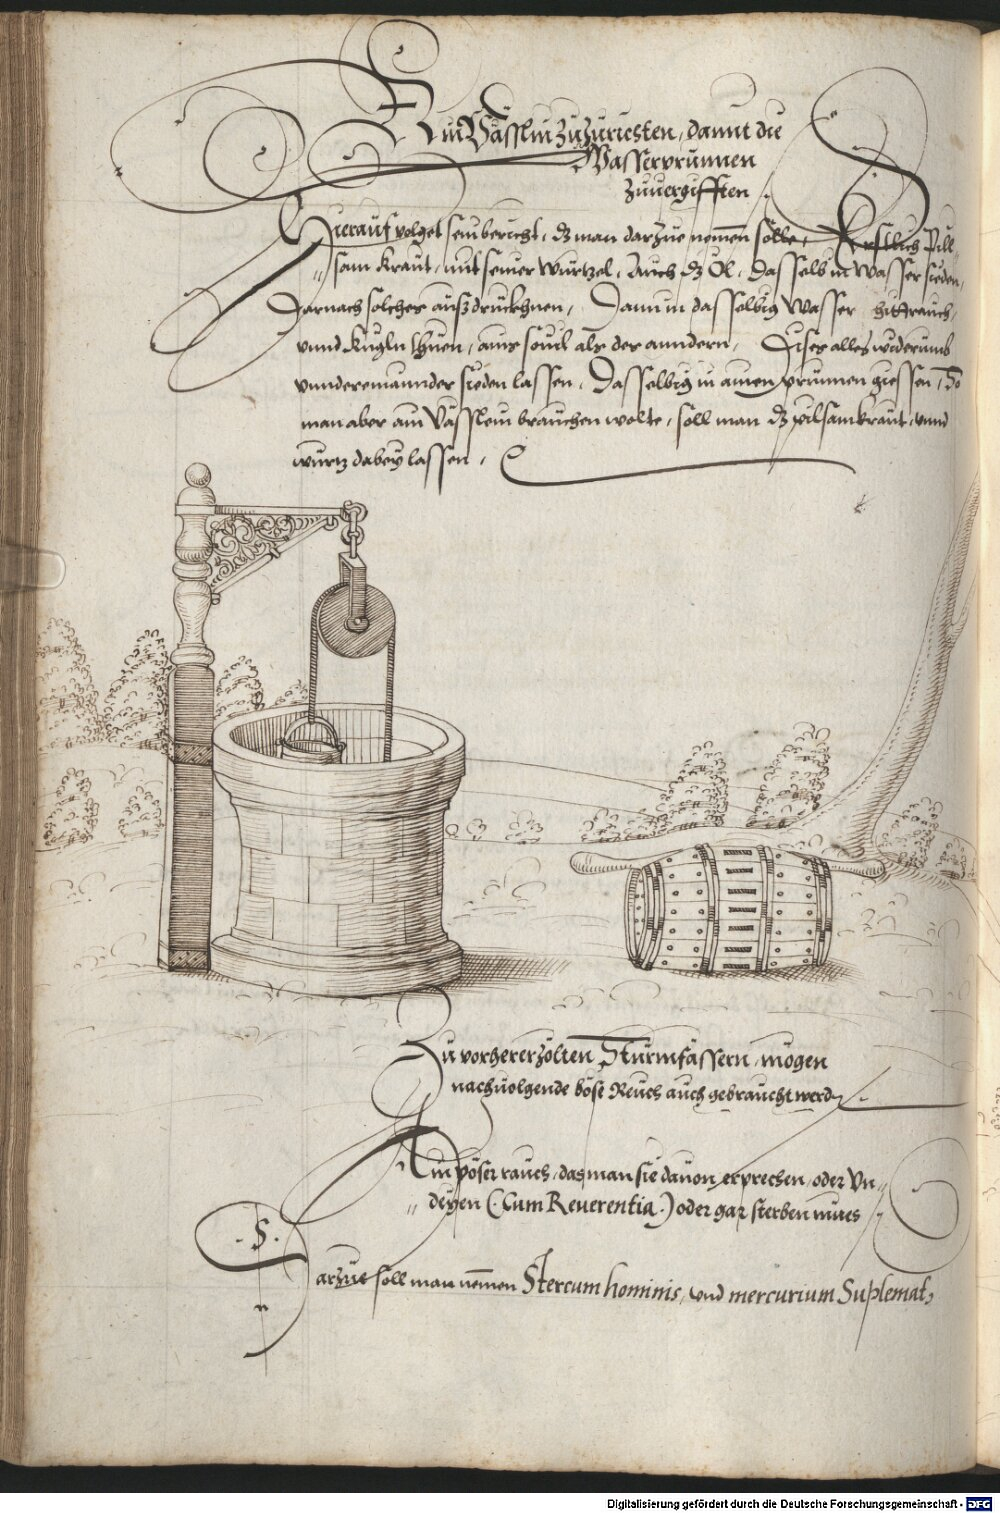 Ein Vässlin zuzuriesten, damit die
Wasserprunnen
zuuergifften.
Hierauf volget sein bericht, dz man darzue nemen solle, Erstlich Pill„
„sam Kraut, mit seiner Wurtzel, Auch dz Öl, dasselb in Wasser sieden,
Darnach solches außdruckhnen, Dann in dasselbig Wasser hittrauch,
vnnd Kugln thuen, ains souil als des anndern, Dises alles widerumb
vnndereinannder sieden lassen, Dasselbig in ainen prunnen giessen, So
man aber ain Vässlein brauchen wolte, soll man dz pilsamkraut, vnnd
wurtz dabey lassen,
Zu vorhererzölten Sturmfässern, mögen
nachuolgende böse Reuch auch gebraucht werdn
Ain pöser rauch, das man sie dauon erprechen, oder Vn„
„deyen (Cum Reuerentia) oder gar sterben mues
.S.
Darzue soll man nemen Stercum hominis, vnd mercurium Suplemat,
n
Digitalisierung gefördert durch die Deutsche Forschungsgemeinschaft - DFG